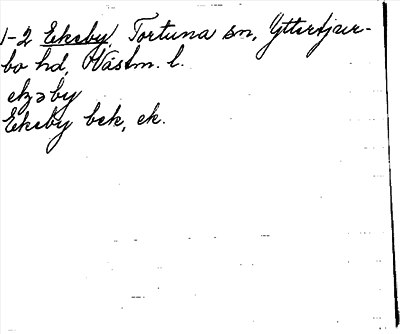 1-2 Ekeby, Tortuna sn, Yttertjur-
bo hd, Västm. l.
ekəby
Ekeby bek, ek.